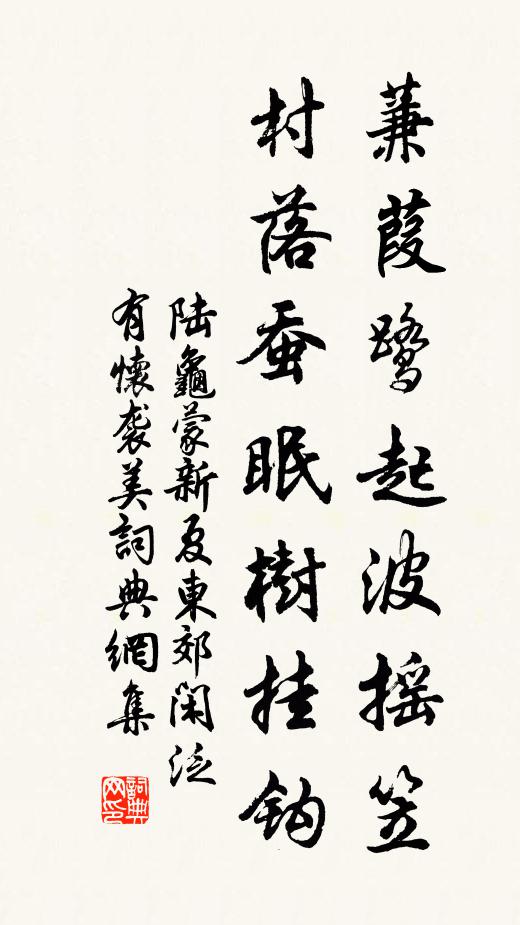 蒹葭鹭起波摇笠
村落蚕眠樹挂鈎
陆龜蒙新夏東郊闲泛
有懷袭美詞典網集
詞典
网印